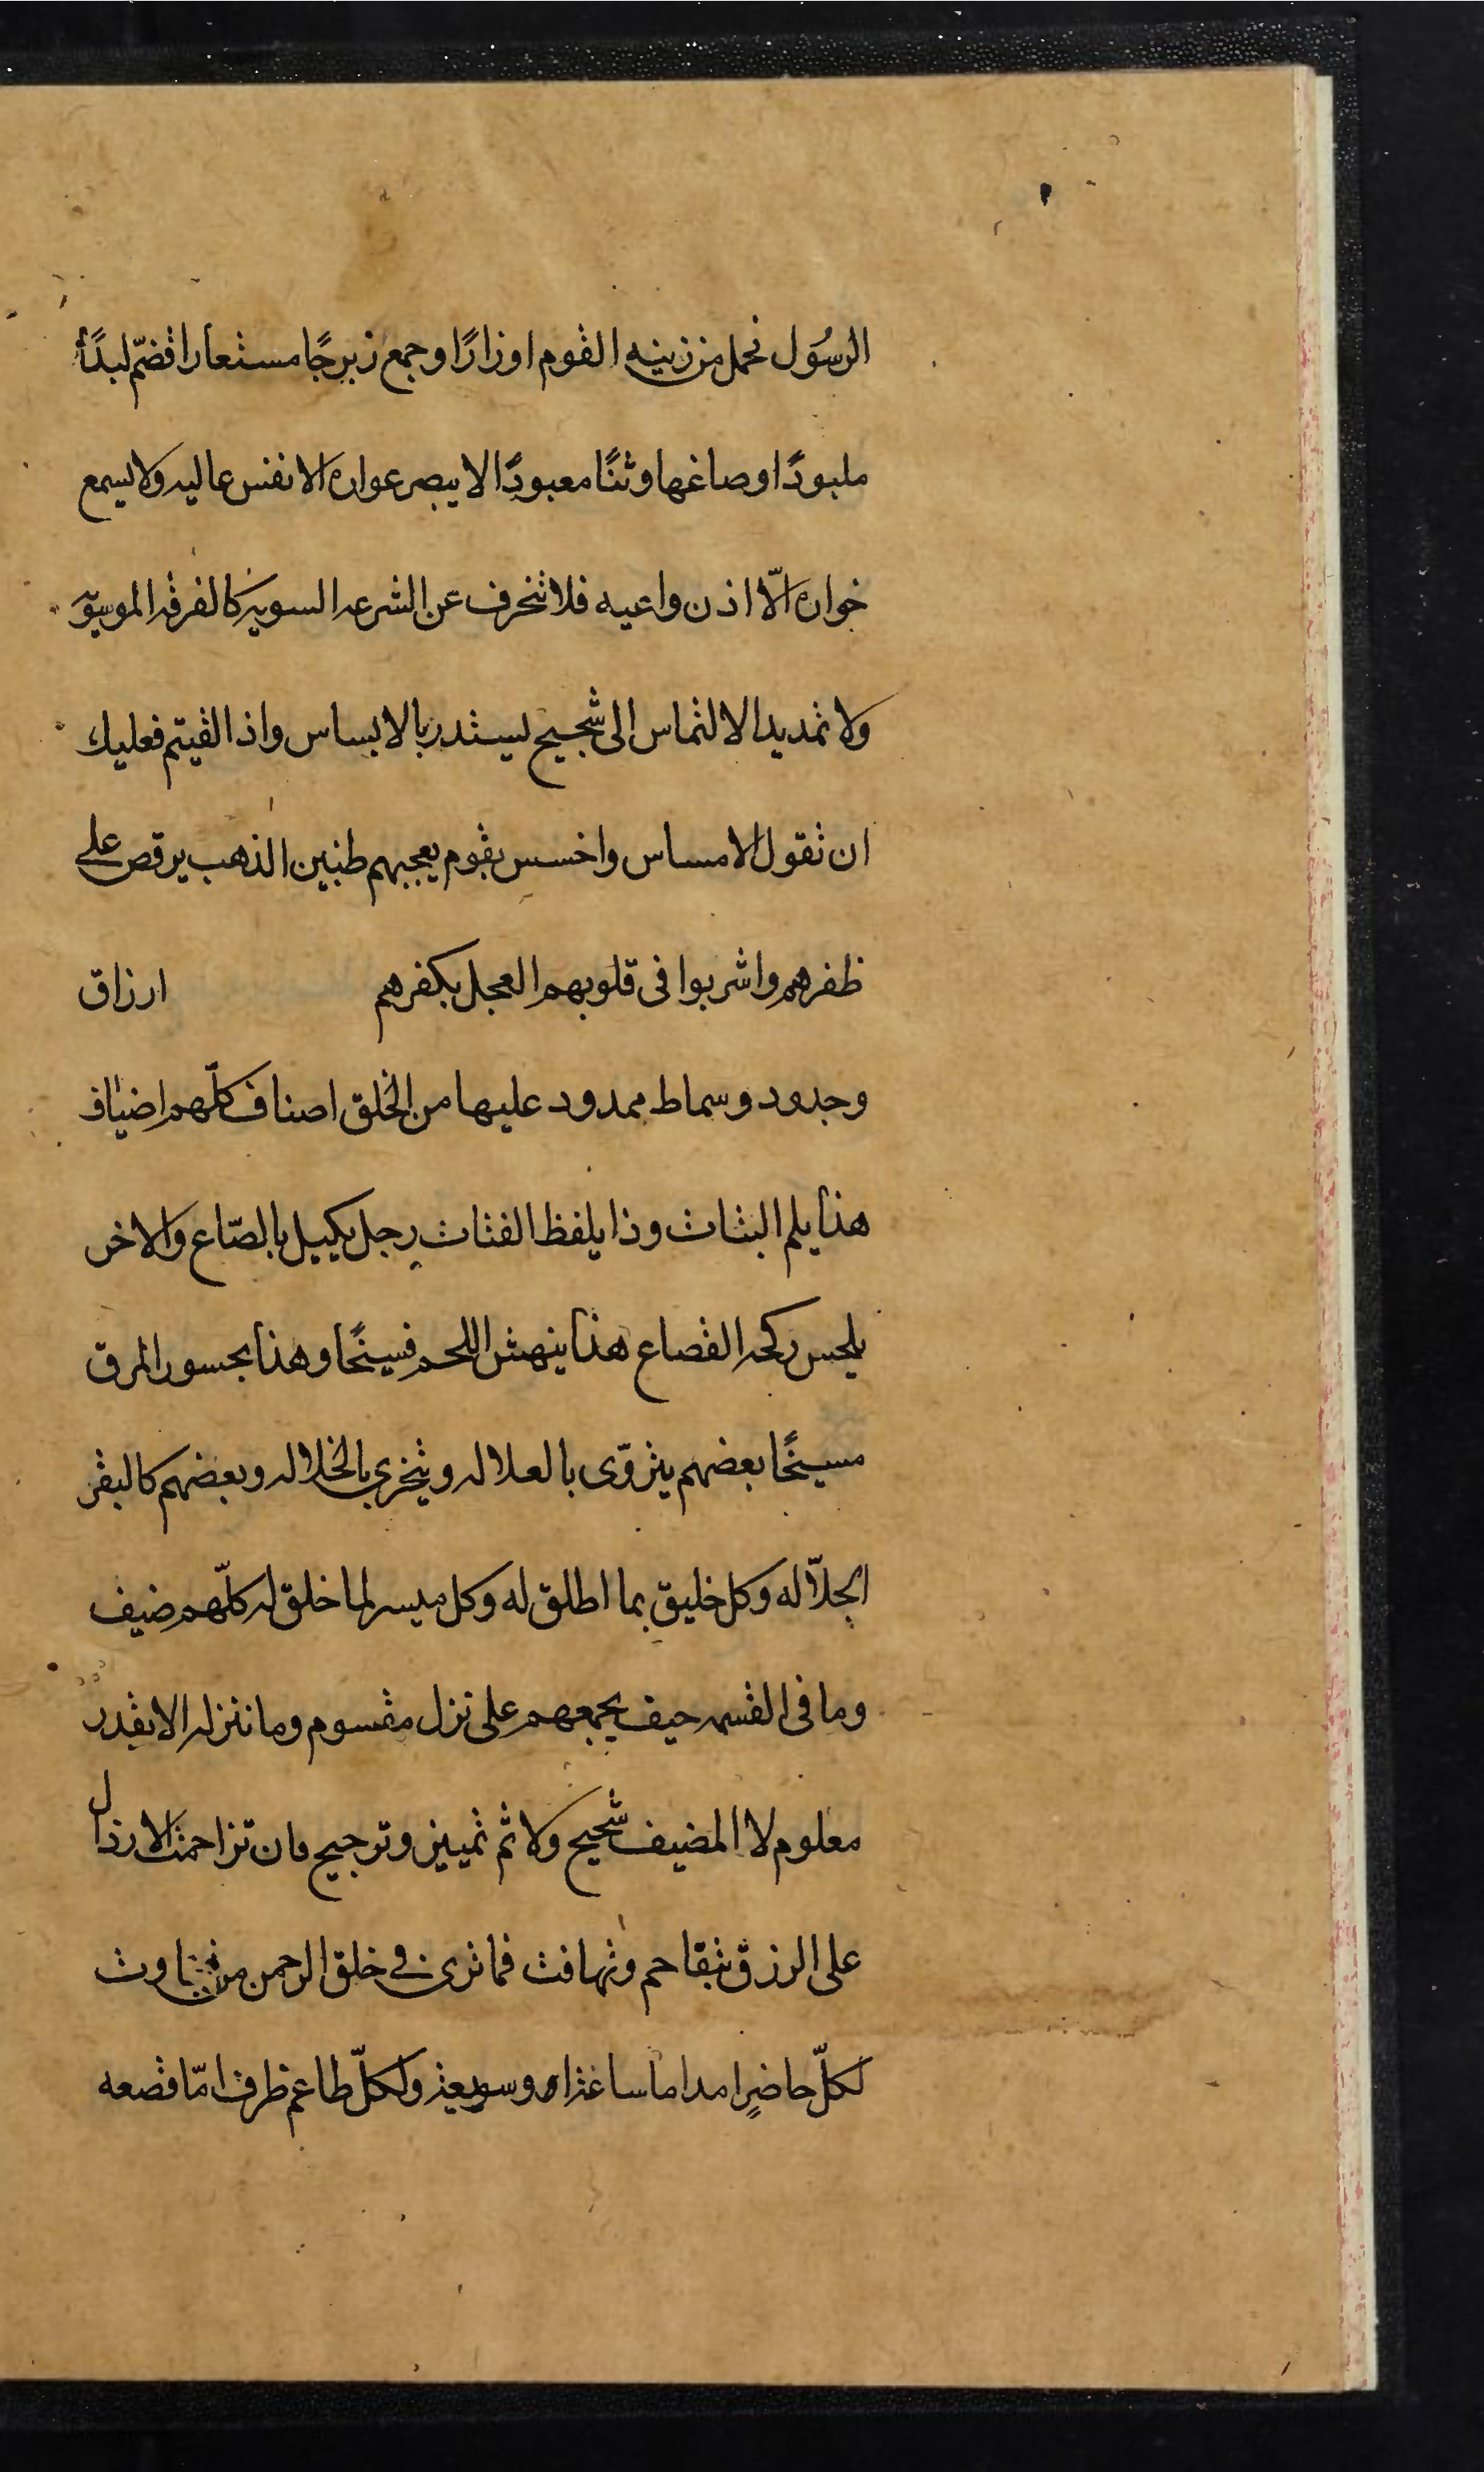 الرسُول فحمل من زينه القوم اوزارًا وجمع زبرجًا مستعارا فضمّ لبدًا
ملبودًا وصاغها وثنًا معبودًا لا يبصر عواره الا نفس عاليه ولا يسمع
خواره الّا اذن واعيه فلا تنحرف عن الشرعه السويه كالفرقه الموسويه
ولا تمد يد الالتماس الى شحيح ليستدر بالابساس واذا لقيتم فعليك
ان تقول لا مساس واخسس بقوم يعجبهم طنين الذهب يرقص على
ظفرهم واشربوا فى قلوبهم العجل بكفرهم ارزاق
وجدود وسماط ممدود عليها من الخلق اصناف كلّهم اضياف
هذا يلم البتات وذا يلفظ الفتات رجل يكيل بالصّاع والاخر
يلحس القصاع هذا ينهش اللحم فسيخًا وهذا يحسو المرق
مسيخًا بعضهم يتروّى بالعلاله ويتجزى بالخلاله وبعضهم كالبقر
الجلّاله وكل خليق بما اطلق له وكل ميسر لما خلق له كلّهم ضيف
وما فى القسمه حيف يجمعهم على نزل مقسوم وما ننزله الا بقدر
معلوم لا المضيف شحيح ولا ثم تمييز وترجيح فان تزاحمت الارذال
على الرزق بتقاحم وتهافت فما ترى فى خلق الرحمن من تفاوت
لكلّ حاضرٍ امد اما ساعة او سويعة ولكلّ طاعم ظرف امّا قصعه